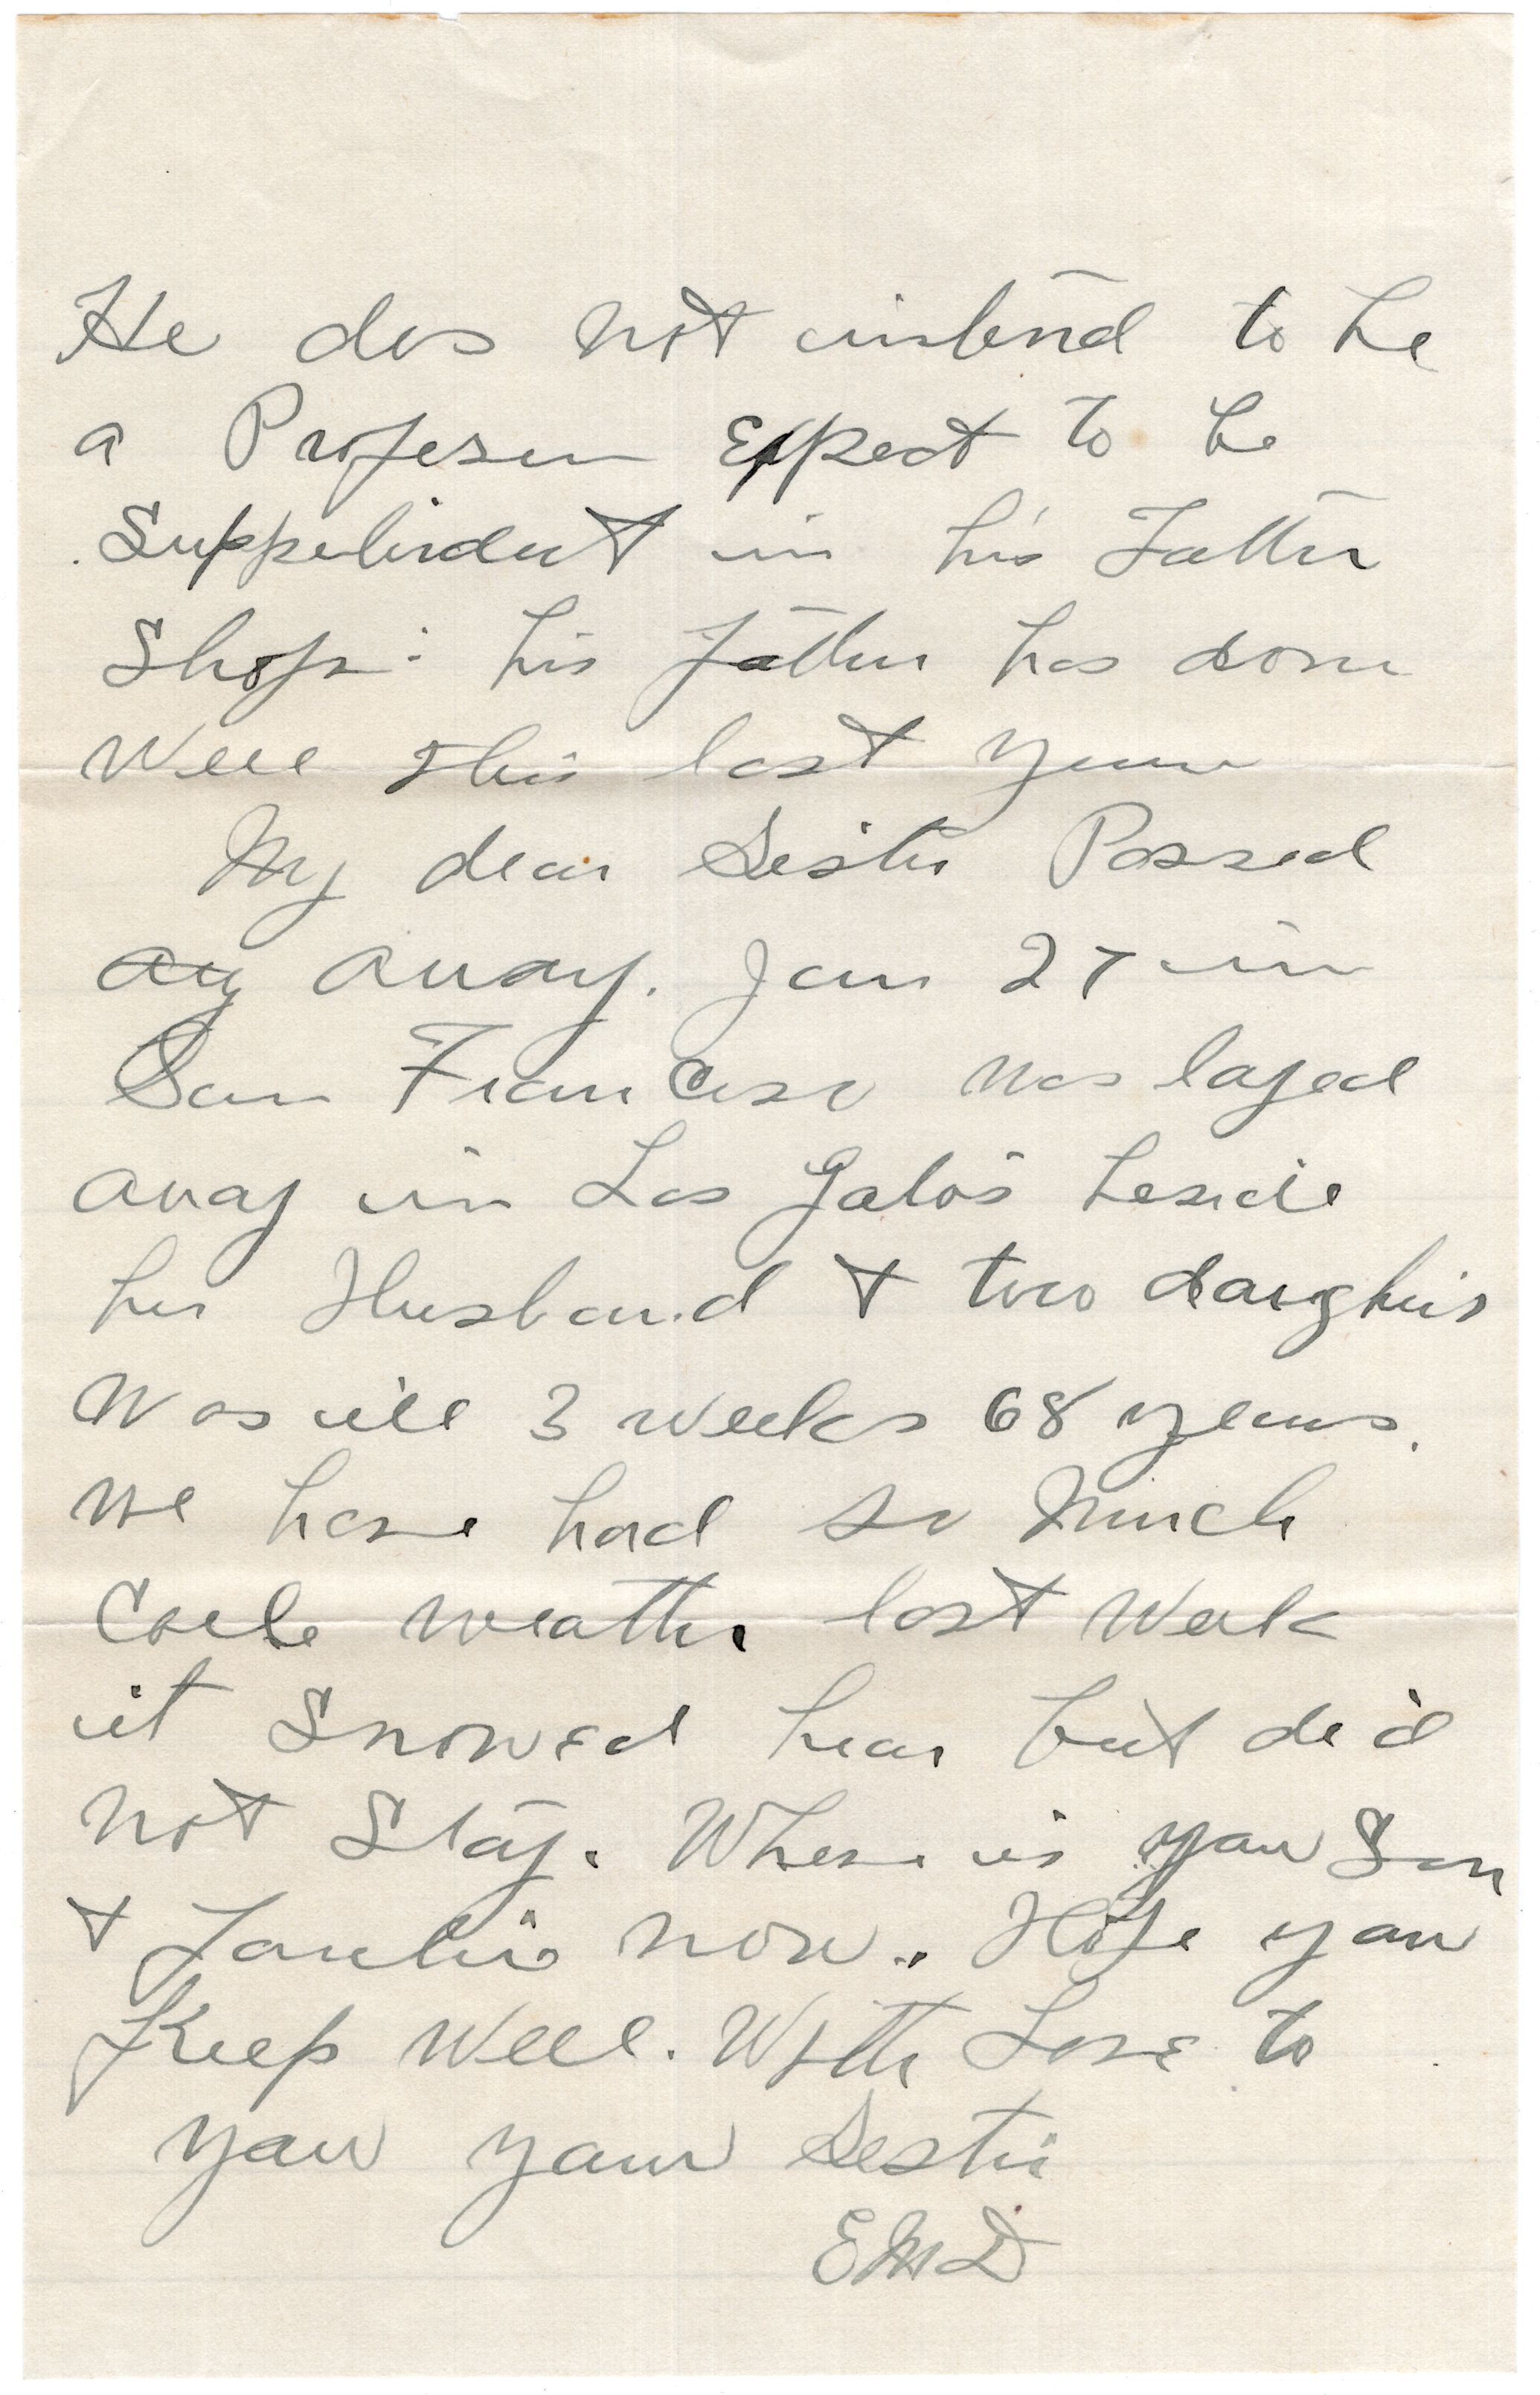 He dos not intend to be
a Profeser Expect to be
Suppelindent in his Father
Shop: his father has done
Well this last year
My dear Sister Passed
away. Jan 27 in
San Francisco was layed
away in Los Gatos beside
her Husband & two daughters
Was ill 3 weeks 68 years.
we have had so Much
Cold weather last Week
it Snowed hear but did
not Stay. Where is your Son
& Familie now. Hope you
Keep Well. With Love to
you your Sister
EMD